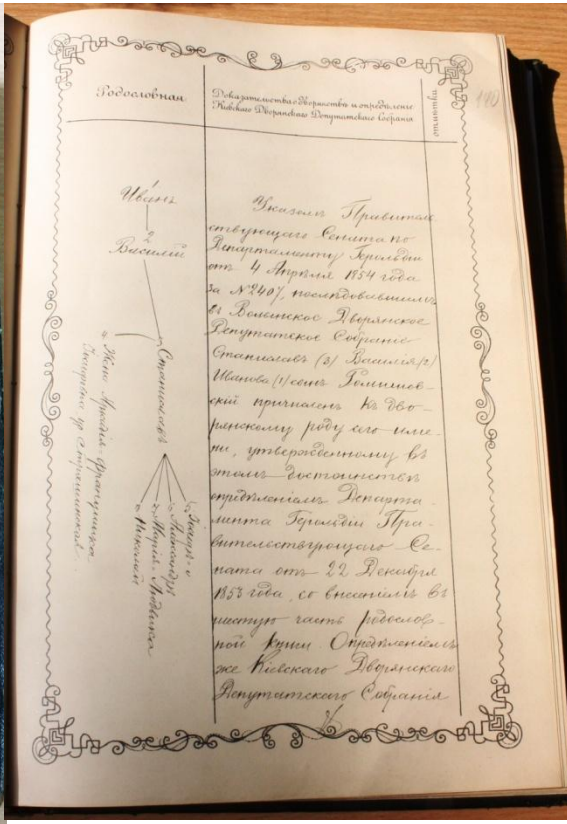 Родословная
Доказательства о дворянстве и определение
Кіевскаго Дворянскаго Депутатскаго Собранія
отмѣтки.
140
Иванъ
2
Василій
Станиславъ
Жена Аркадія-Францишка
ур. Страшинская.
Александръ
Марія-Людвика
Николай
Указомъ Правитель
ствующаго Сената по
Департаменту Герольдіи
отъ 4 Апрѣля 1854 года
за № 2407, послѣдовавшимъ
въ Волынское Дворянское
Депутатское Собраніе
Станиславъ (3) Василія (2)
Иванова (1) сынъ
скій причисленъ къ дво-
рянскому роду его име-
ни, утвержденному въ
этомъ достоинствѣ
опредѣленіемъ Департа-
мента Герольдіи Пра-
вительствующаго Се-
ната отъ 22 Декабря
1853 года, со внесеніемъ въ
шестую часть родослов-
ной книги. Опредѣленіемъ
же Кіевскаго Дворянскаго
Депутатскаго Собранія